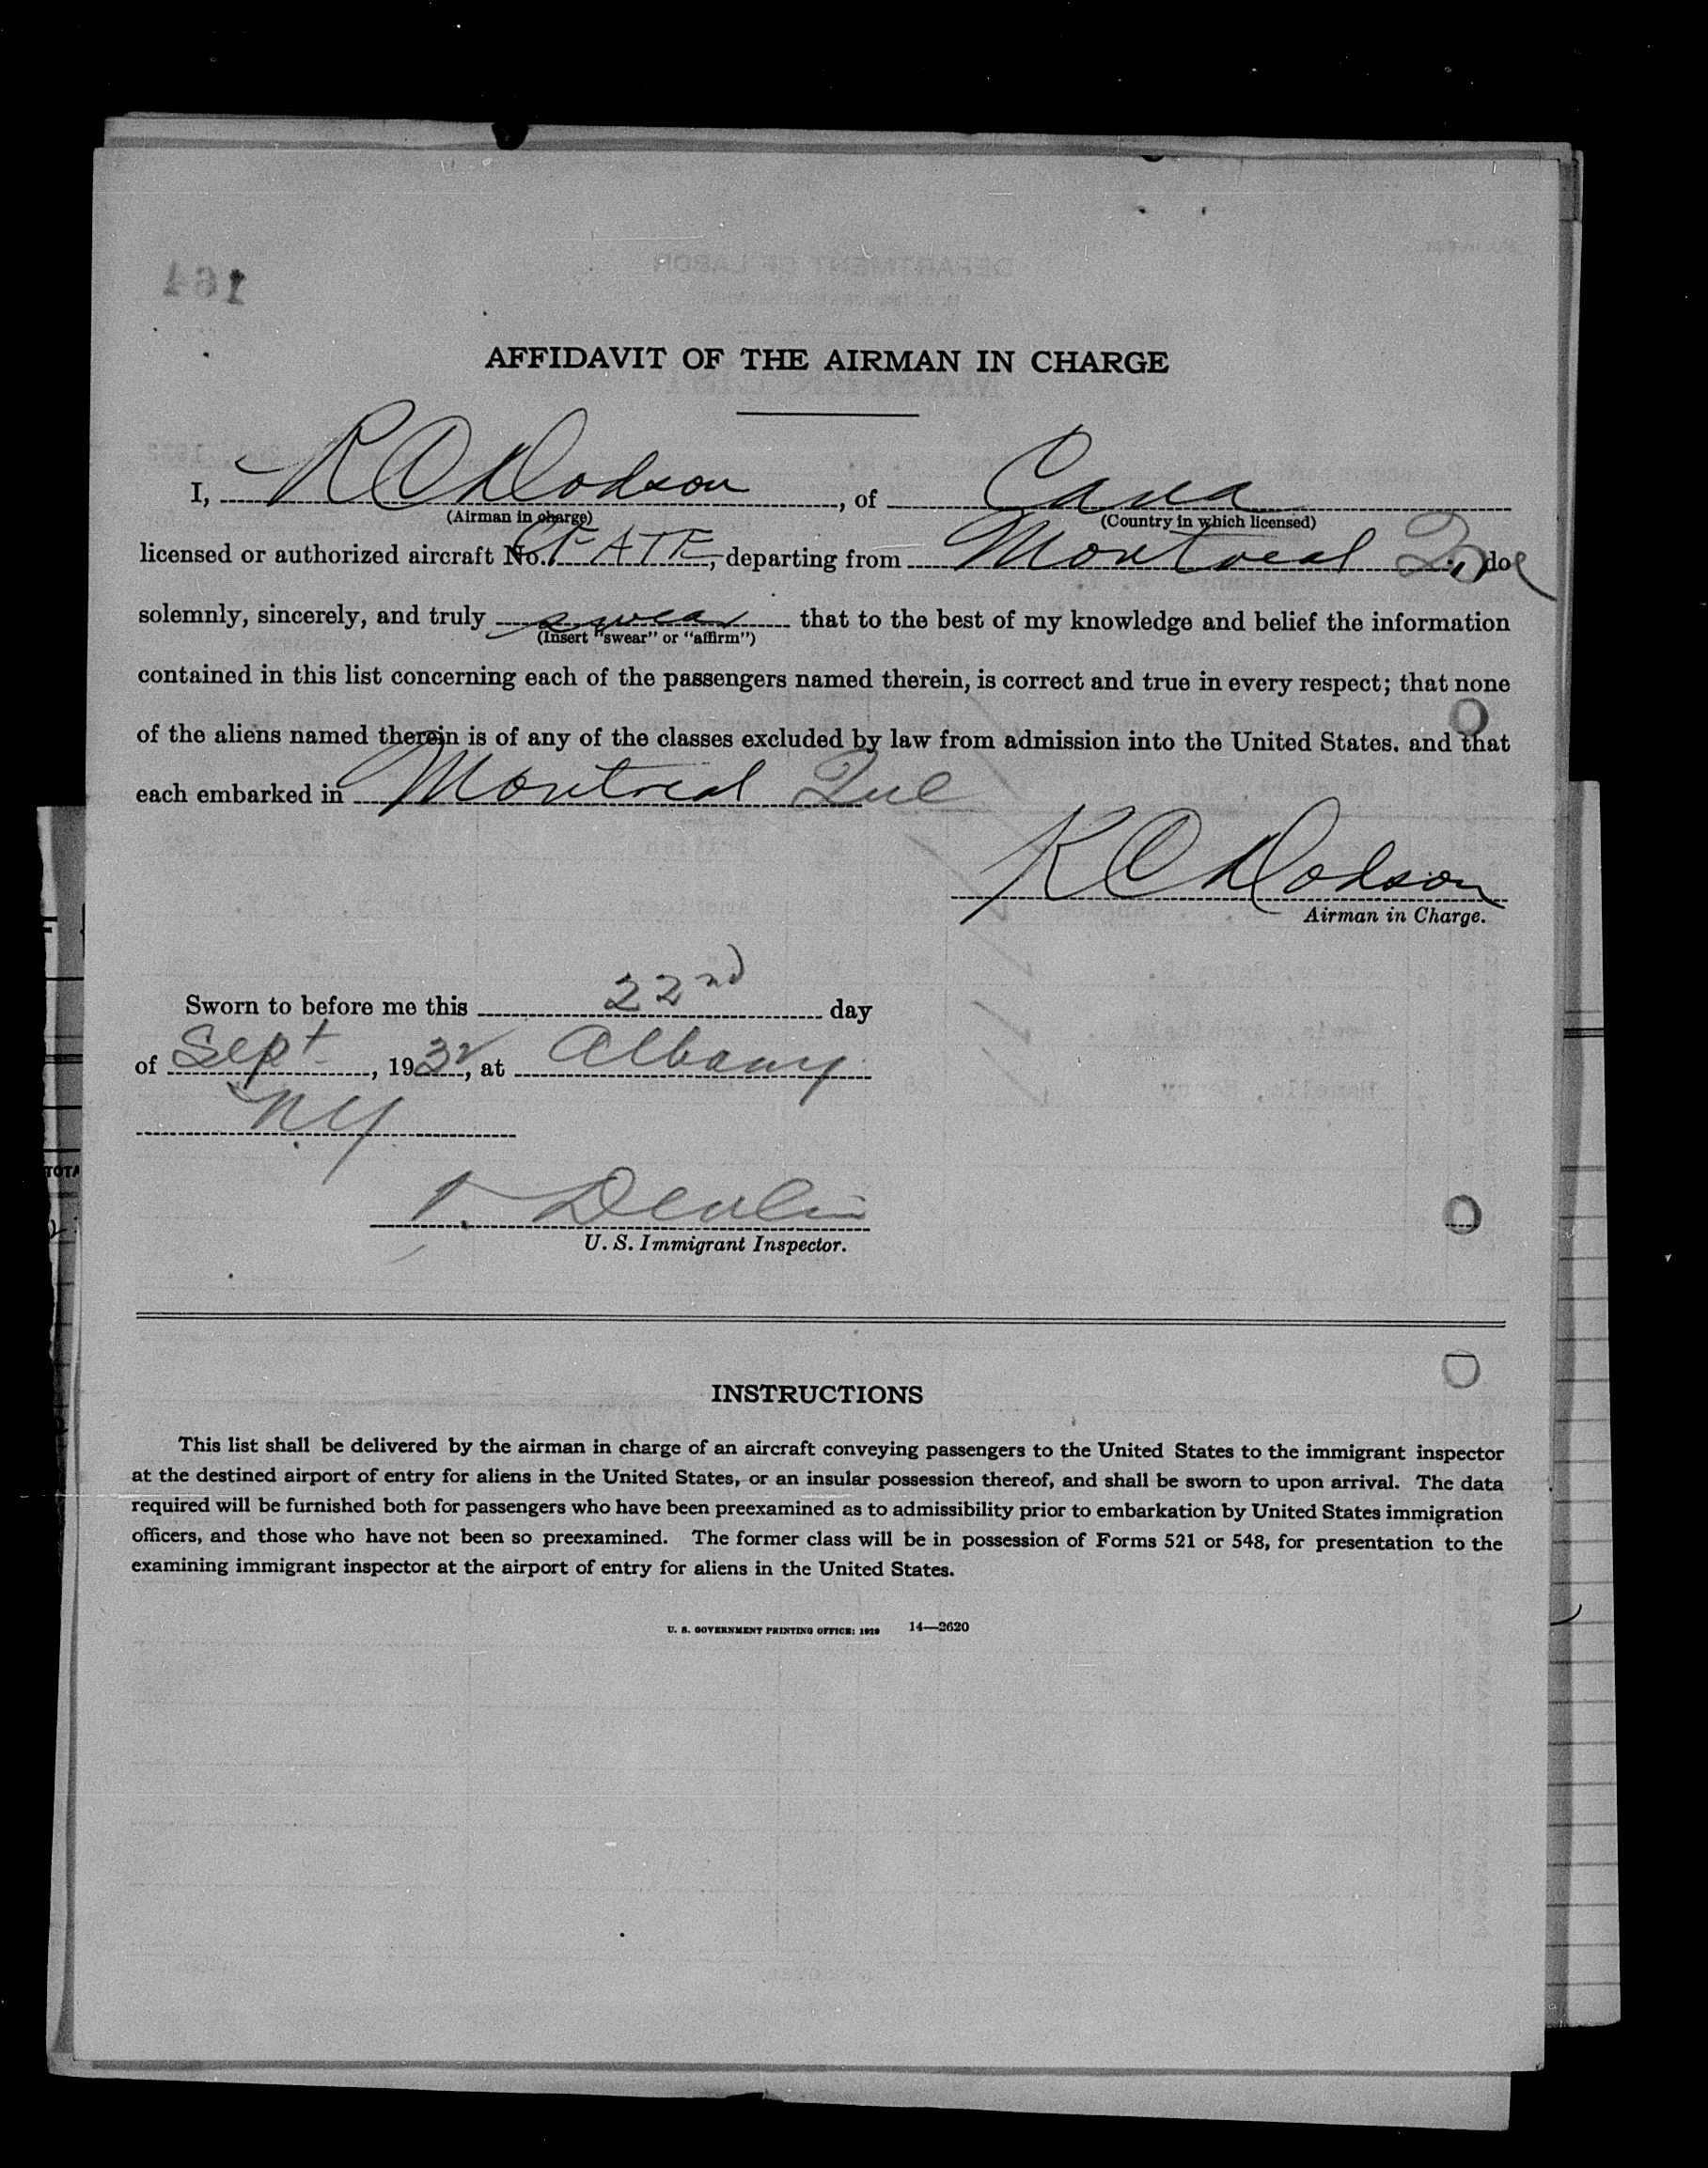 AFFIDAVIT OF THE AIRMAN IN CHARGE
I, R C Dodson, of Cana
(Airman in charge) (Country in which licensed)
licensed or authorized aircraft No. CF ATF, departing from Montreal Que, do
solemnly, sincerely, and truly swear that to the best of my knowledge and belief the information
(Insert "swear" or "affirm")
contained in this list concerning each of the passengers named therein, is correct and true in every respect; that none
of the aliens named therein is of any of the classes excluded by law from admission into the United States. and that
each embarked in Montreal Que
R C Dodson
Airman in Charge.
Sworn to before me this 22nd day
of Sept, 1932, at Albany
N.Y.
Devlin
U. S. Immigrant Inspector.
INSTRUCTIONS
This list shall be delivered by the airman in charge of an aircraft conveying passengers to the United States to the immigrant inspector
at the destined airport of entry for aliens in the United States, or an insular possession thereof, and shall be sworn to upon arrival. The data
required will be furnished both for passengers who have been preexamined as to admissibility prior to embarkation by United States immigration
officers, and those who have not been so preexamined. The former class will be in possession of Forms 521 or 548, for presentation to the
examining immigrant inspector at the airport of entry for aliens in the United States.
U. S. GOVERNMENT PRINTING OFFICE: 1929 14—2620